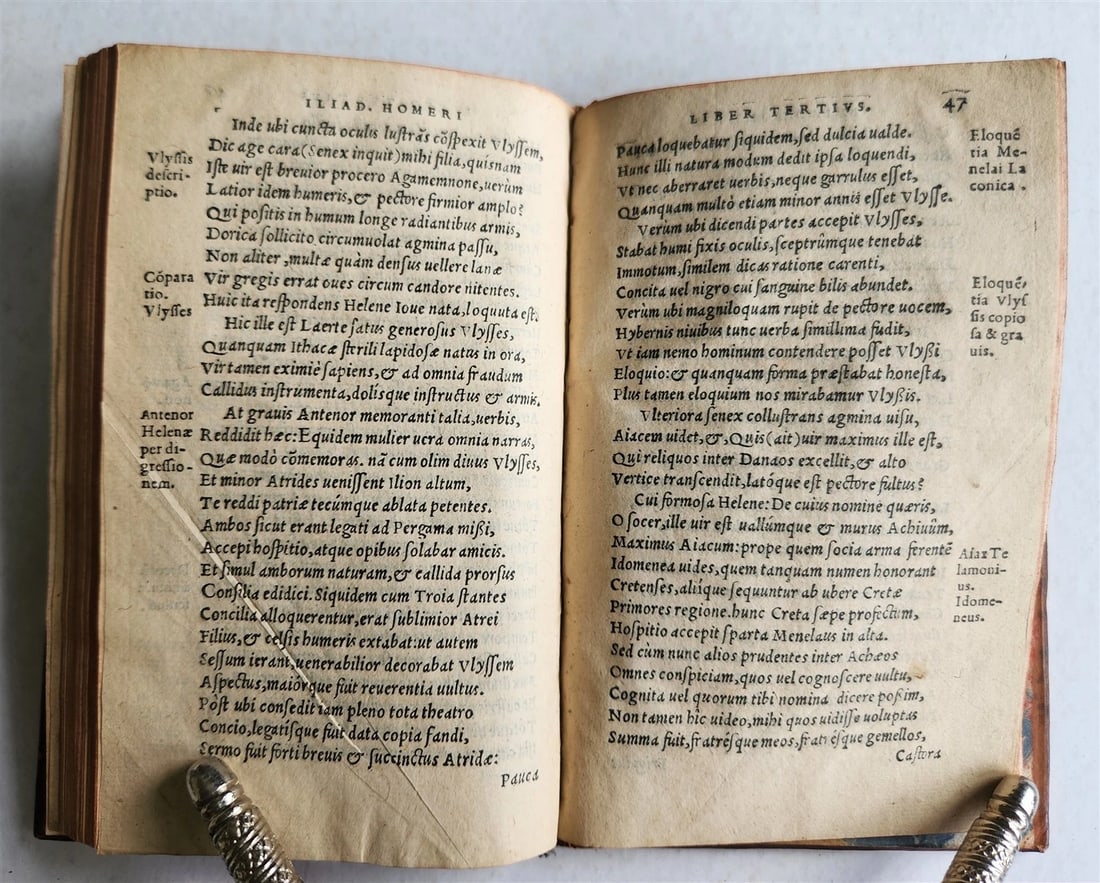 ILIAD. HOMERI
Inde ubi cuncta oculis lustrãs cõspexit Vlyssem,
Dic age cara(Senex inquit)mihi filia,quisnam
Iste uir est breuior procero Agamemnone,uerùm
Latior idem humeris,& pectore firmior amplo?
Qui positis in humum longe radiantibus armis,
Dorica sollicito circumuolat agmina passu,
Non aliter,multæ quàm densus uellere lanæ
Vir gregis errat oues circum candore nitentes.
Huic ita respondens Helene Ioue nata,loquuta est.
Hic ille est Laerte satus generosus Vlysses,
Quanquam Ithacæ sterili lapidosæ natus in ora,
Vir tamen eximiè sapiens,& ad omnia fraudum
Callidus instrumenta,dolisque instructus & armis.
At grauis Antenor memoranti talia,uerbis,
Reddidit hæc:Equidem mulier uera omnia narras,
Quæ modò cõmemoras. nã cum olim diuus Vlysses,
Et minor Atrides uenissent Ilion altum,
Te reddi patriæ tecúmque ablata petentes.
Ambos sicut erant legati ad Pergama mißi,
Accepi hospitio,atque opibus solabar amicis.
Et simul amborum naturam,& callida prorsus
Consilia edidici. Siquidem cum Troia stantes
Concilia alloquerentur,erat sublimior Atrei
Filius,& celsis humeris extabat:ut autem
Sessum ierant,uenerabilior decorabat Vlyssem
Aspectus,maiórque fuit reuerentia uultus.
Pòst ubi consedit iam pleno tota theatro
Concio,legatísque fuit data copia fandi,
Sermo fuit forti breuis & succinctus Atridæ:
Pauca
Vlyssis
descri-
ptio.
Cópara
tio.
Vlysses
Antenor
Helenæ
per di-
gressio-
nem.
LIBER TERTIVS.
47
Pauca loquebatur siquidem,sed dulcia ualde.
Hunc illi natura modum dedit ipsa loquendi,
Vt nec aberraret uerbis,neque garrulus esset,
Quanquam multò etiam minor annis esset Vlysse.
Verùm ubi dicendi partes accepit Vlysses,
Stabat humi fixis oculis,sceptrúmque tenebat
Immotum,similem dicas ratione carenti,
Concita uel nigro cui sanguine bilis abundet.
Verùm ubi magniloquam rupit de pectore uocem,
Hybernis niuibus tunc uerba simillima fudit,
Vt iam nemo hominum contendere posset Vlyßi
Eloquio:& quanquam forma præstabat honesta,
Plus tamen eloquium nos mirabamur Vlyßis.
Vlteriora senex collustrans agmina uisu,
Aiacem uidet,&,Quis(ait)uir maximus ille est,
Qui reliquos inter Danaos excellit,& alto
Vertice transcendit,latóque est pectore fultus?
Cui formosa Helene:De cuius nomine quæris,
O socer,ille uir est uallúmque & murus Achiuûm,
Maximus Aiacum:prope quem socia arma ferentē
Idomenea uides,quem tanquam numen honorant
Cretenses,aliíque sequuntur ab ubere Cretæ
Primores regione.hunc Creta sæpe profectum,
Hospitio accepit sparta Menelaus in alta.
Sed cùm nunc alios prudentes inter Achæos
Omnes conspiciam,quos uel cognoscere uultu,
Cognita uel quorum tibi nomina dicere poßim,
Non tamen hîc uideo,mihi quos uidisse uoluptas
Summa fuit,fratrésque meos,fratrésque gemellos,
Castora
Eloquē
tia Me-
nelai La
conica.
Eloquē,
tia Vlyſ
sis copio
sa & gra
uis.
Aiax Te
lamoni-
us.
Idome-
neus.